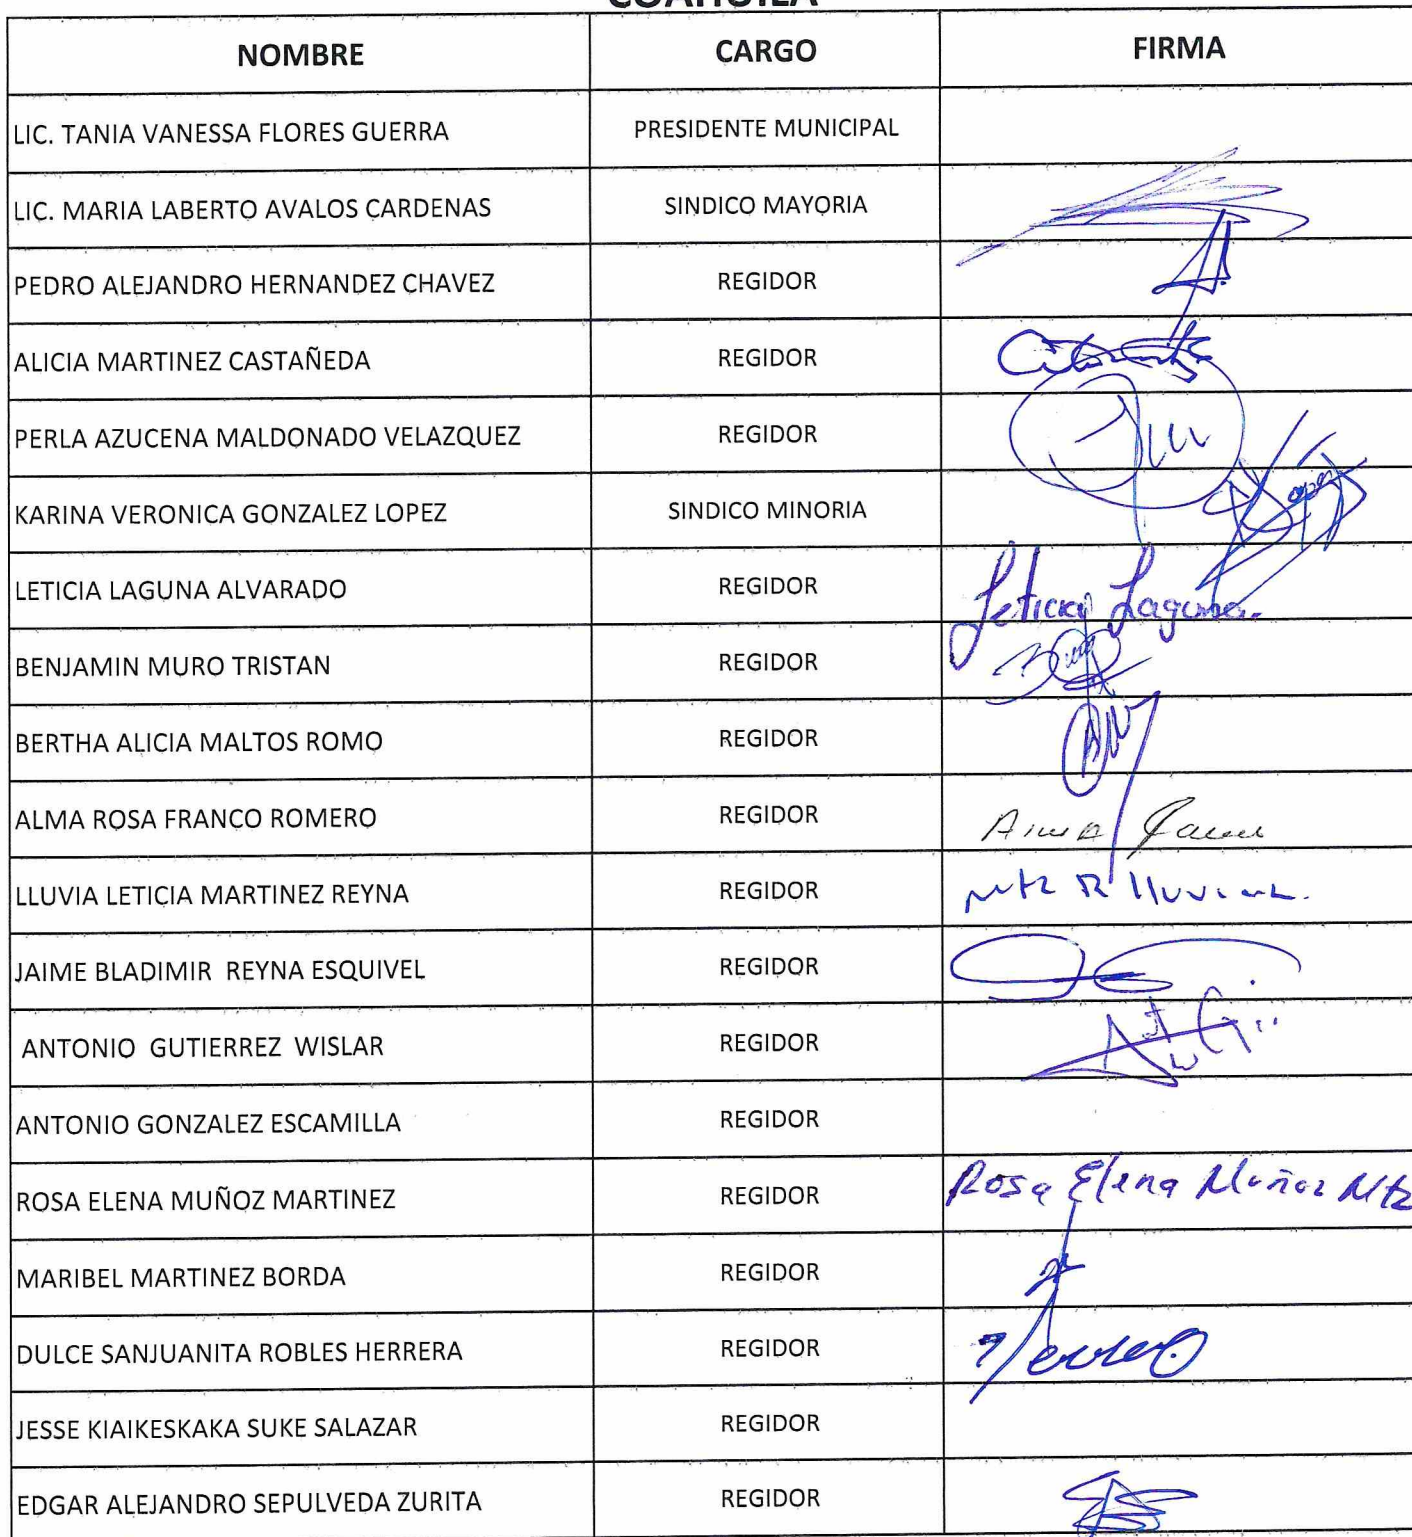 COAHUILA
NOMBRE CARGO FIRMA
LIC. TANIA VANESSA FLORES GUERRA PRESIDENTE MUNICIPAL
LIC. MARIA LABERTO AVALOS CARDENAS SINDICO MAYORIA
PEDRO ALEJANDRO HERNANDEZ CHAVEZ REGIDOR
ALICIA MARTINEZ CASTAÑEDA REGIDOR
PERLA AZUCENA MALDONADO VELAZQUEZ REGIDOR
KARINA VERONICA GONZALEZ LOPEZ SINDICO MINORIA
LETICIA LAGUNA ALVARADO REGIDOR Leticia Laguna.
BENJAMIN MURO TRISTAN REGIDOR
BERTHA ALICIA MALTOS ROMO REGIDOR
ALMA ROSA FRANCO ROMERO REGIDOR
LLUVIA LETICIA MARTINEZ REYNA REGIDOR
JAIME BLADIMIR REYNA ESQUIVEL REGIDOR
ANTONIO GUTIERREZ WISLAR REGIDOR
ANTONIO GONZALEZ ESCAMILLA REGIDOR
ROSA ELENA MUÑOZ MARTINEZ REGIDOR Rosa Elena Muñoz Mtz
MARIBEL MARTINEZ BORDA REGIDOR
DULCE SANJUANITA ROBLES HERRERA REGIDOR
JESSE KIAIKESKAKA SUKE SALAZAR REGIDOR
EDGAR ALEJANDRO SEPULVEDA ZURITA REGIDOR